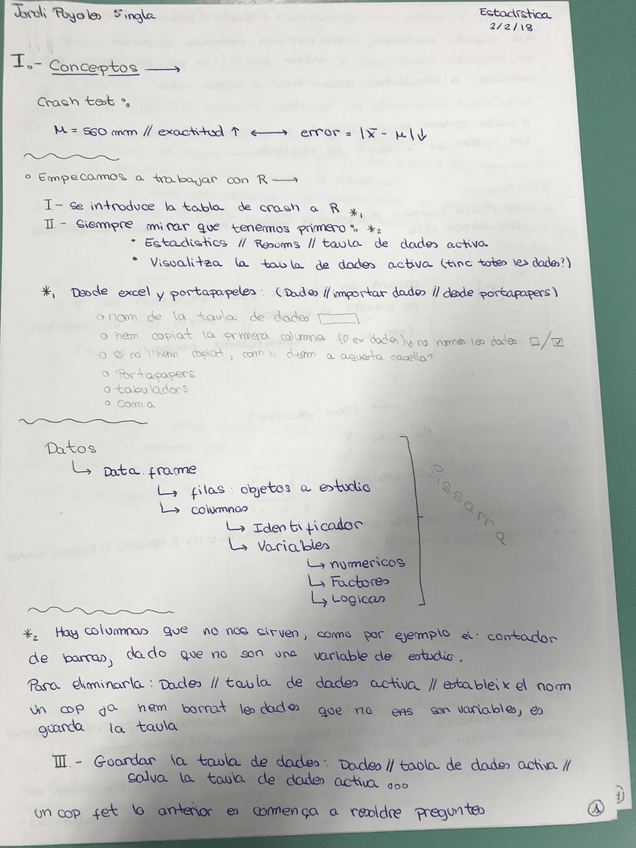 Jordi Poyatos Singla
Estadística
2/2/18
I.- Conceptos →
Crash test:
μ = 560 mm // exactitud ↑ ↔ error = |x̄ - μ| ↓
Empecamos a trabajar con R →
I - Se introduce la tabla de crash a R *1
II - Siempre mirar que tenemos primero: *2
• Estadistics // Resums // taula de dades activa
• Visualitza la taula de dades activa (tinc totes les dades?)
*1 Desde excel y portapapeles: (Dades // importar dades // desde portapapers)
o nom de la taula de dades
o hem copiat la primera columna (o er dades) y no nomes les dades □/☑
o o no l'hem copiat, com li diem a aquesta casella?
o Portapapers
o tabuladors
o Coma
Datos
↳ Data frame
↳ filas: objetos a estudio
↳ columnas
↳ Identificador
↳ Variables
↳ numericos
↳ Factores
↳ Logicas
Pissarra
*2 Hay columnas que no nos sirven, como por ejemplo el contador
de barras, dado que no son una variable de estudio.
Para eliminarla: Dades // taula de dades activa // estableix el nom
un cop ja hem borrat les dades que no ens son variables, es
guarda la taula
III.- Guardar la taula de dades: Dades // taula de dades activa //
salva la taula de dades activa ...
un cop fet lo anterior es comença a resoldre preguntes
1